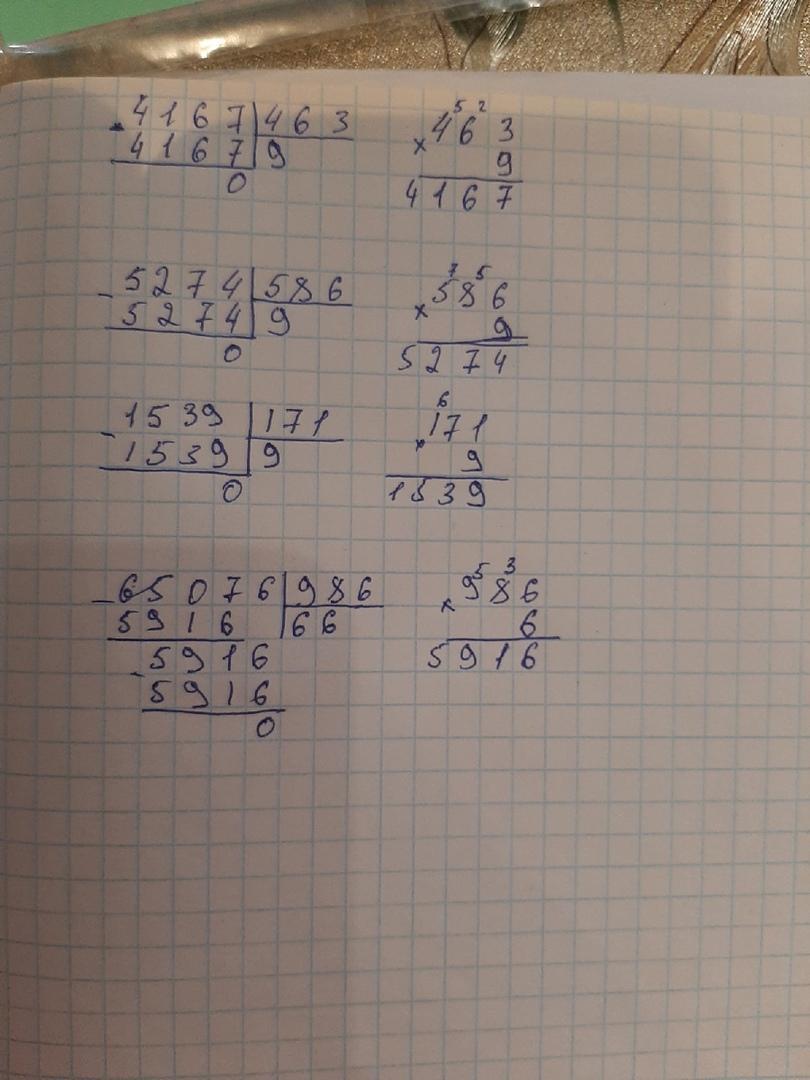 4167 463 5 2
4167 9 463
0 × 9
4167
- 5274 586 7 5
5274 9 × 586
0 9
5274
- 1539 171 6
1539 9 × 171
0 9
1539
- 65076 986 5 3
5916 66 × 986
- 5916 6
5916 5916
0